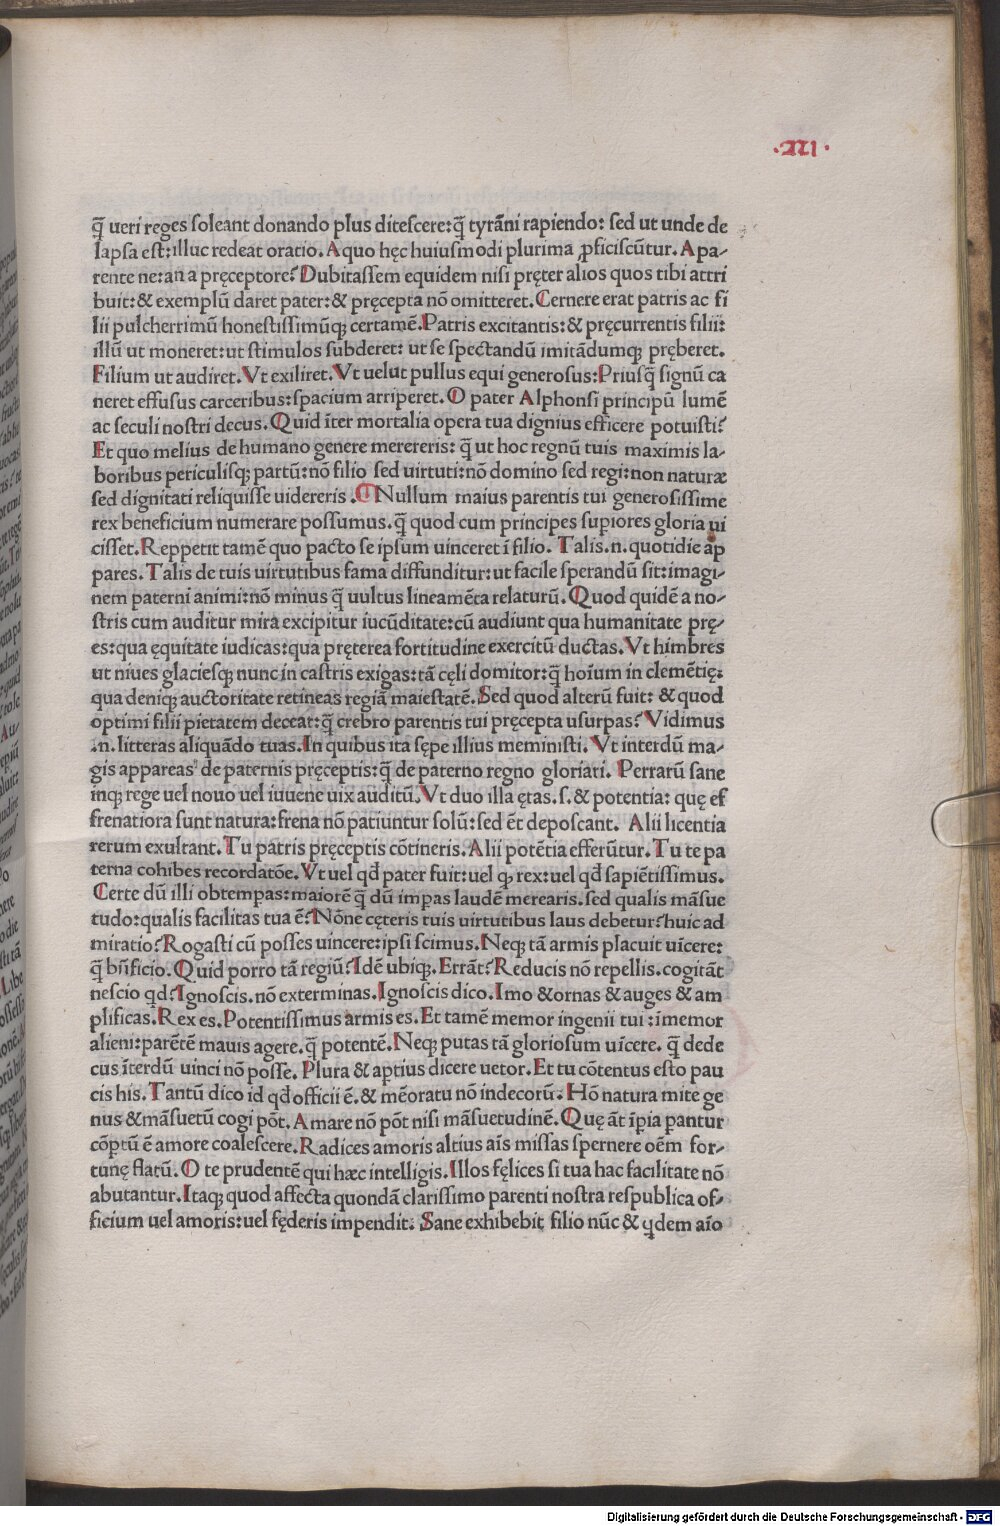 ·XXI·
q̃ ueri reges soleant donando plus ditescere: q̃ tyrãni rapiendo: sed ut unde de
lapsa est: illuc redeat oratio. A quo hęc huiusmodi plurima ꝓficiscũtur. A pa-
rente ne: an a pręceptore? Dubitassem equidem nisi pręter alios quos tibi attri
buit: & exemplũ daret pater: & pręcepta nõ omitteret. Cernere erat patris ac fi
lii pulcherrimũ honestissimũqꝫ certamẽ. Patris excitantis: & pręcurrentis filii:
illũ ut moneret: ut stimulos subderet: ut se spectandũ imitãdumqꝫ pręberet.
Filium ut audiret. Vt exiliret. Vt uelut pullus equi generosus: Priusq̃ signũ ca
neret effusus carceribus: spacium arriperet. O pater Alphonsi principũ lumẽ
ac seculi nostri decus. Quid ĩter mortalia opera tua dignius efficere potuisti?
Et quo melius de humano genere merereris: q̃ ut hoc regnũ tuis maximis la-
boribus periculisqꝫ partũ: nõ filio sed uirtuti: nõ domino sed regi: non naturæ
sed dignitati reliquisse uidereris . Nullum maius parentis tui generosissime
rex beneficium numerare possumus. q̃ quod cum principes supiores gloria ui
cisset. Reppetit tamẽ quo pacto se ipsum uinceret ĩ filio. Talis .n. quotidie ap̃
pares. Talis de tuis uirtutibus fama diffunditur: ut facile sperandũ sit: imagi-
nem paterni animi: nõ minus q̃ uultus lineamẽta relaturũ. Quod quidẽ a no-
stris cum auditur mira excipitur iucũditate: cũ audiunt qua humanitate prę-
es: qua ęquitate iudicas: qua pręterea fortitudine exercitũ ductas. Vt himbres
ut niues glaciesqꝫ nunc in castris exigas: tã cęli domitor: q̃ hoĩum in clemẽtię:
qua deniqꝫ auctoritate retineas regiã maiestatẽ. Sed quod alterũ fuit: & quod
optimi filii pietatem deceat: q̃ crebro parentis tui pręcepta usurpas? Vidimus
.n. litteras aliquãdo tuas. In quibus ita sępe illius meministi. Vt interdũ ma-
gis appareas de paternis pręceptis: q̃ de paterno regno gloriari. Perrarũ sane
inqꝫ rege uel nouo uel iuuene uix auditũ. Vt duo illa ętas .s. & potentia: quę ef
frenatiora sunt natura: frena nõ patiuntur solũ: sed ẽt deposcant. Alii licentia
rerum exultant. Tu patris pręceptis cõtineris. Alii potẽtia efferũtur. Tu te pa
terna cohibes recordatõe. Vt uel qđ pater fuit: uel qꝫ rex: uel qđ sapiẽtissimus.
Certe dũ illi obtempas: maiorẽ q̃ dũ impas laudẽ merearis. sed qualis mãsue
tudo: qualis facilitas tua ẽ? Nõne cęteris tuis uirtutibus laus debetur? huic ad
miratio? Rogasti cũ posses uincere: ipsi scimus. Neqꝫ tã armis placuit uĩcere:
q̃ bñficio. Quid porro tã regiũ? Idẽ ubiqꝫ. Errãt? Reducis nõ repellis. cogitãt
nescio qđ? Ignoscis. nõ exterminas. Ignoscis dico. Imo & ornas & auges & am
plificas. Rex es. Potentissimus armis es. Et tamẽ memor ingenii tui: ĩmemor
alieni: parẽtẽ mauis agere. q̃ potentẽ. Neqꝫ putas tã gloriosum uĩcere. q̃ dede
cus ĩterdũ uinci nõ posse. Plura & aptius dicere uetor. Et tu cõtentus esto pau
cis his. Tantũ dico id qđ officii ẽ. & mẽoratu nõ indecorũ. Hõ natura mite ge
nus & mãsuetũ cogi põt. Amare nõ põt nisi mãsuetudinẽ. Que ãt ĩpia pantur
cõptũ ẽ amore coalescere. Radices amoris altius aĩs missas spernere oẽm for-
tunę flatũ. O te prudentẽ qui hæc intelligis. Illos fęlices si tua hac facilitate nõ
abutantur. Itaqꝫ quod affecta quondã clarissimo parenti nostra respublica of-
ficium uel amoris: uel fęderis impendit. Sane exhibebit filio nũc & qdem aĩo
Digitalisierung gefördert durch die Deutsche Forschungsgemeinschaft - DFG